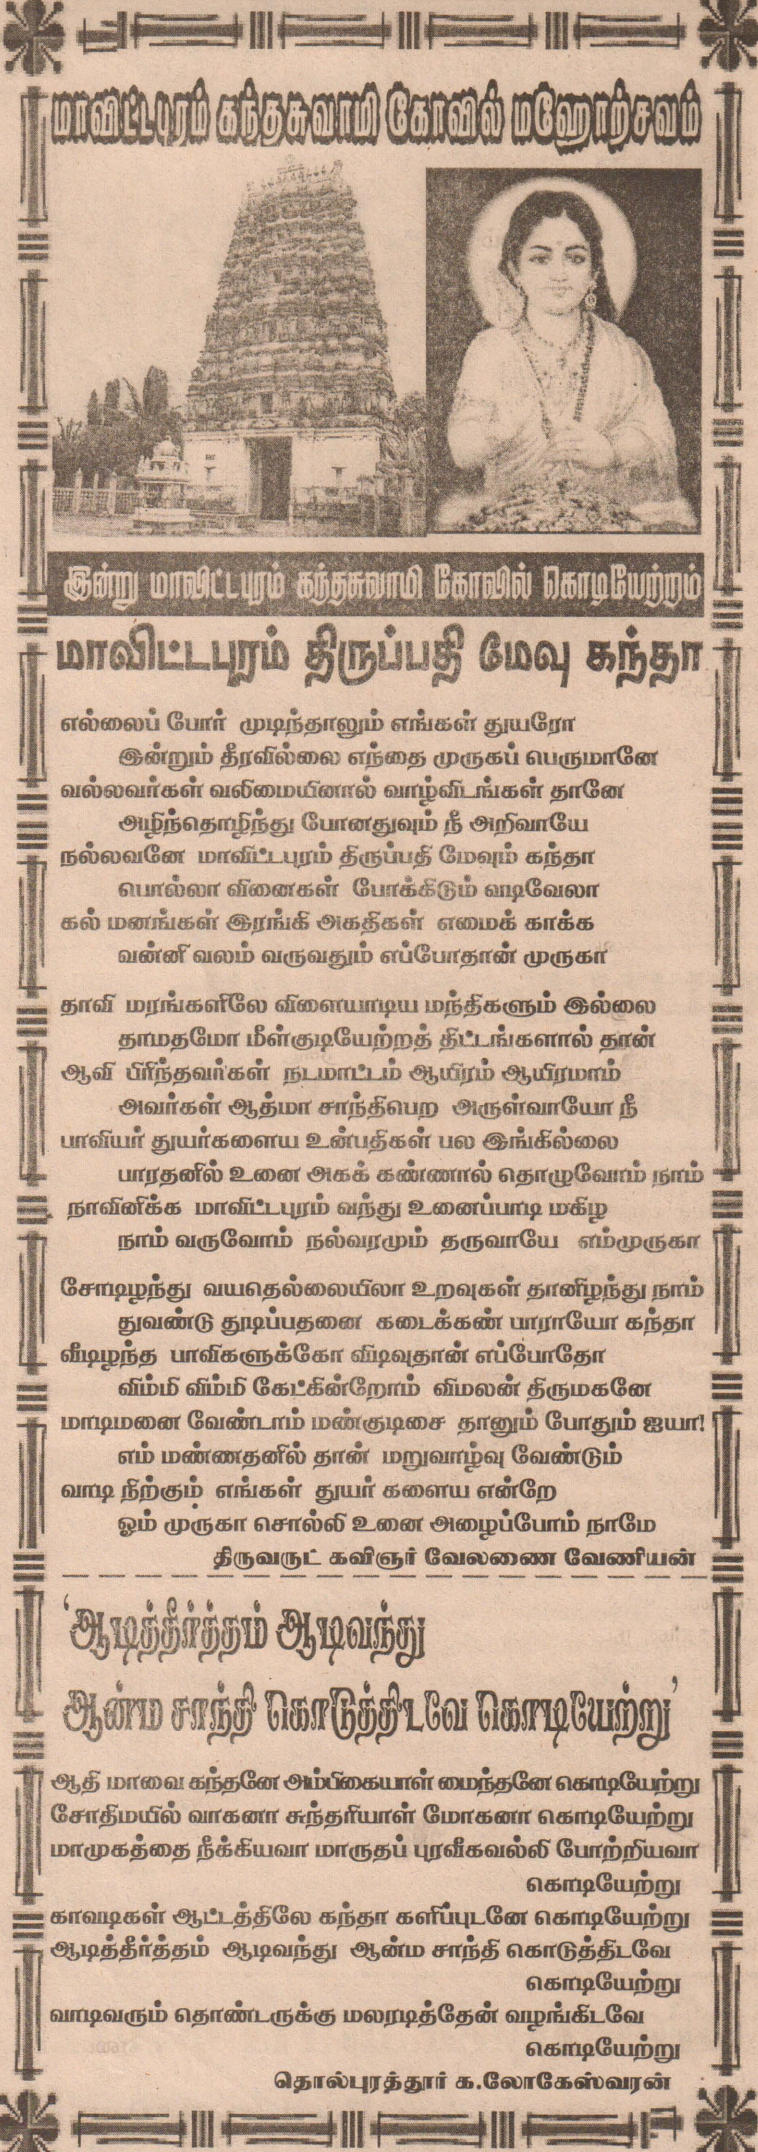 மாவிட்டபுரம் கந்தசுவாமி கோவில் மஹோற்சவம்
இன்று மாவிட்டபுரம் கந்தசுவாமி கோவில் கொடியேற்றம்
மாவிட்டபுரம் திருப்பதி மேவு கந்தா
எல்லைப் போர் முடிந்தாலும் எங்கள் துயரோ
இன்றும் தீரவில்லை எந்தை முருகப் பெருமானே
வல்லவர்கள் வலிமையினால் வாழ்விடங்கள் தானே
அழிந்தொழிந்து போனதுவும் நீ அறிவாயே
நல்லவனே மாவிட்டபுரம் திருப்பதி மேவும் கந்தா
பொல்லா வினைகள் போக்கிடும் வடிவேலா
கல் மனங்கள் இரங்கி அகதிகள் எமைக் காக்க
வன்னி வலம் வருவதும் எப்போதான் முருகா
தாவி மரங்களிலே விளையாடிய மந்திகளும் இல்லை
தாமதமோ மீள்குடியேற்றத் திட்டங்களால் தான்
ஆவி பிரிந்தவர்கள் நடமாட்டம் ஆயிரம் ஆயிரமாம்
அவர்கள் ஆத்மா சாந்திபெற அருள்வாயோ நீ
பாவியர் துயர்களைய உன்பதிகள் பல இங்கில்லை
பாரதனில் உனை அகக் கண்ணால் தொழுவோம் நாம்
நாவினிக்க மாவிட்டபுரம் வந்து உனைப்பாடி மகிழ
நாம் வருவோம் நல்வரமும் தருவாயே எம்முருகா
சோடிழந்து வயதெல்லையிலா உறவுகள் தானிழந்து நாம்
துவண்டு துடிப்பதனை கடைக்கண் பாராயோ கந்தா
வீடிழந்த பாவிகளுக்கோ விடிவுதான் எப்போதோ
விம்மி விம்மி கேட்கின்றோம் விமலன் திருமகனே
மாடிமனை வேண்டாம் மண்குடிசை தானும் போதும் ஐயா!
எம் மண்ணதனில் தான் மறுவாழ்வு வேண்டும்
வாடி நிற்கும் எங்கள் துயர் களைய என்றே
ஓம் முருகா சொல்லி உனை அழைப்போம் நாமே
திருவருட் கவிஞர் வேலணை வேணியன்
‘ஆடித்தீர்த்தம் ஆடிவந்து
ஆன்ம சாந்தி கொடுத்திடவே கொடியேற்று’
ஆதி மாவை கந்தனே அம்பிகையாள் மைந்தனே கொடியேற்று
சோதிமயில் வாகனா சுந்தரியாள் மோகனா கொடியேற்று
மாமுகத்தை நீக்கியவா மாருதப் புரவீகவல்லி போற்றியவா
கொடியேற்று
காவடிகள் ஆட்டத்திலே கந்தா களிப்புடனே கொடியேற்று
ஆடித்தீர்த்தம் ஆடிவந்து ஆன்ம சாந்தி கொடுத்திடவே
கொடியேற்று
வாடிவரும் தொண்டருக்கு மலரடித்தேன் வழங்கிடவே
கொடியேற்று
தொல்புரத்தூர் க.லோகேஸ்வரன்